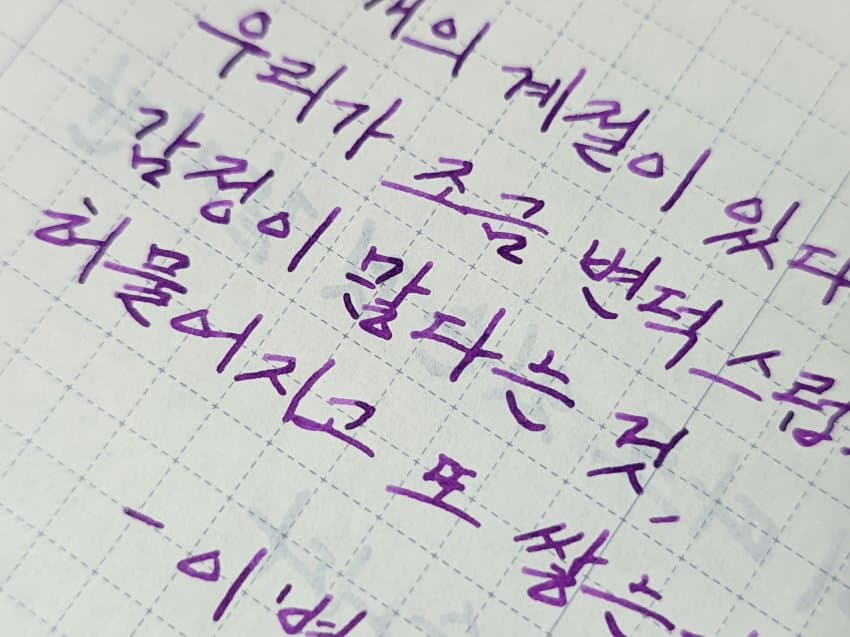 계절이 있다
우리가 조금 변덕스럽
감정이 많다는 것,
허물어지고 또 쌓는